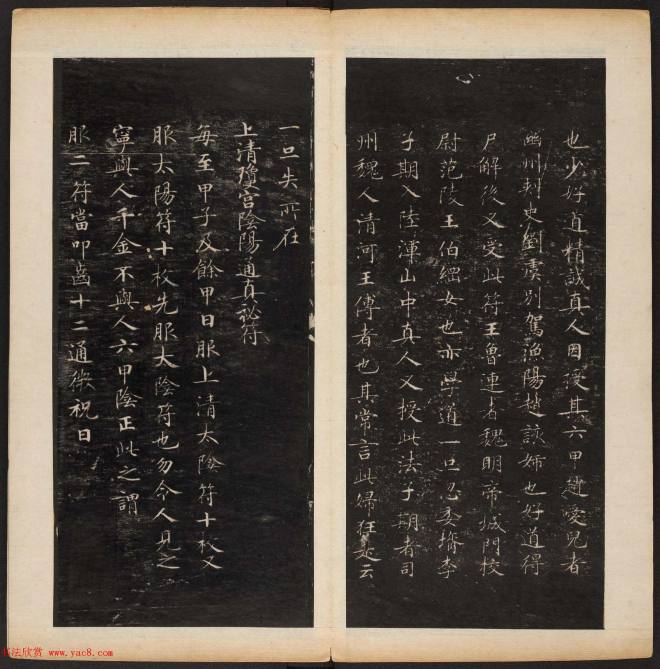 也少好道精誠真人因授其六甲趙愛兒者
幽州刺史劉虞別駕漁陽趙該婦也好道得
尸解後又受此符王魯連者魏明帝城門校
尉范陵王伯綱女也亦學道一旦忽委壻李
子期入陸渾山中真人又授此法子期者司
州魏人清河王傅者也其常言此婦狂走云
一旦失所在
上清瓊宮陰陽通真祕符
每至甲子及餘甲日服上清太陰符十枚又
服太陽符十枚先服太陰符也勿令人見之
寧與人千金不與人六甲陰正此之謂
服二符當叩齒十二通微祝曰
书法欣赏 www.yac8.com